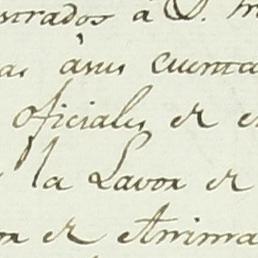 strados á D.
as àsus cuenta
oficiales de
la Lavor de
de Arrima